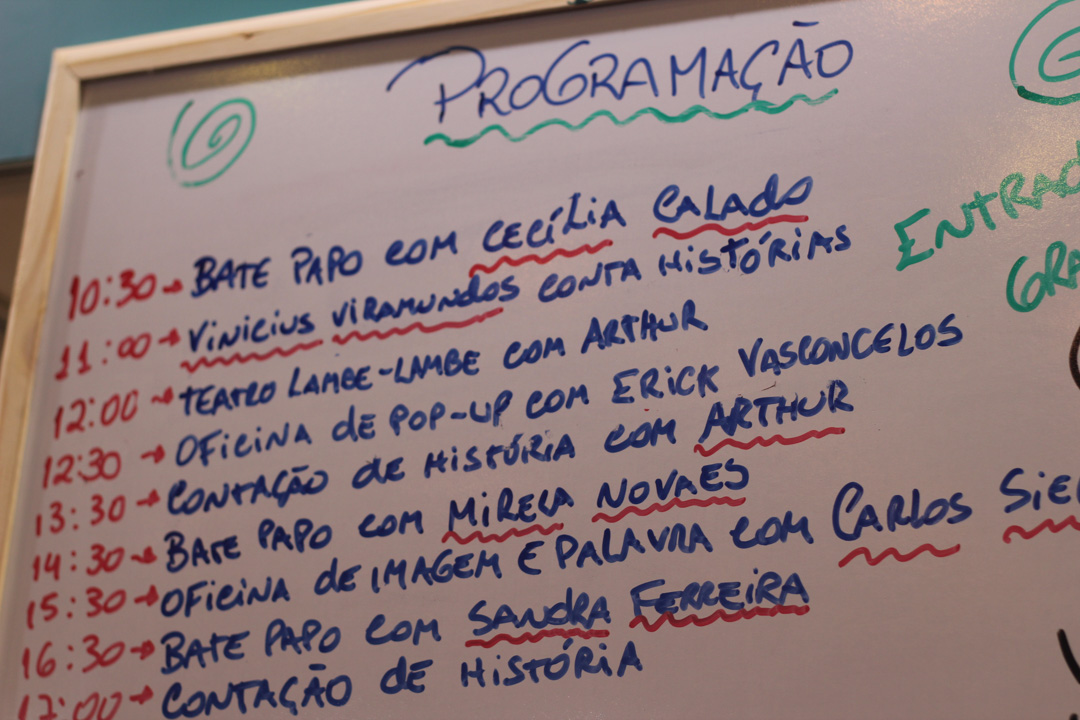 PROGRAMAÇÃO
10:30 → BATE PAPO COM CECÍLIA CALADO
11:00 → VINICIUS VIRAMUNDOS CONTA HISTÓRIAS
12:00 → TEATRO LAMBE-LAMBE COM ARTHUR
12:30 → OFICINA DE POP-UP COM ERICK VASCONCELOS
13:30 → CONTAÇÃO DE HISTÓRIA COM ARTHUR
14:30 → BATE PAPO COM MIRELA NOVAES
15:30 → OFICINA DE IMAGEM E PALAVRA COM CARLOS
16:30 → BATE PAPO COM SANDRA FERREIRA
17:00 → CONTAÇÃO DE HISTÓRIA